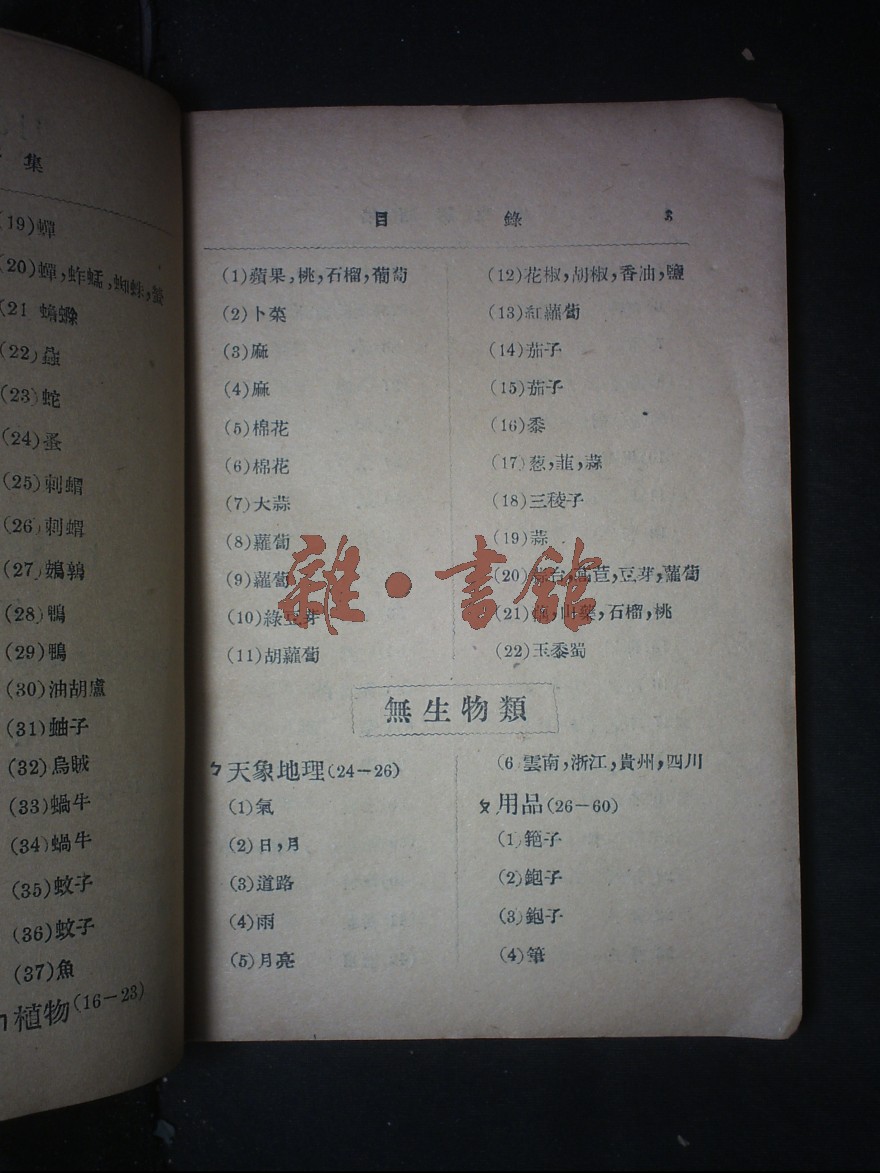 集
(19)蟬
(20)蟬,蚱蠕,蜘蛛,
(21
(22)蝨
(23)蛇
(24)蚤
(25)刺蝟
(26)刺蝟
(27)鵪鶉
(28)鴨
(29)鴨
(30)油胡盧
(31)蚰子
(32)烏賊
(33)蝸牛
(34)蝸牛
(35)蚊子
(36)蚊子
(37)魚
ㄇ植物(16—23)
目 錄
(1)蘋果,桃,石榴,葡萄
(2)卜菜
(3)麻
(4)麻
(5)棉花
(6)棉花
(7)大蒜
(8)蘿蔔
(9)蘿蔔
(10)綠豆芽
(11)胡蘿蔔
(12)花椒,胡椒,香油,鹽
(13)紅蘿蔔
(14)茄子
(15)茄子
(16)黍
(17)葱,韮,蒜
(18)三稜子
(19)蒜
(20)蒜台,萵苣,豆芽,蘿蔔
(21) 山藥,石榴,桃
(22)玉黍蜀
雜·書館
無生物類
ㄅ天象地理(24—26)
(1)氣
(2)日,月
(3)道路
(4)雨
(5)月亮
(6 雲南,浙江,貴州,四川
ㄆ用品(26—60)
(1) 子
(2)鉋子
(3)鉋子
(4)筆